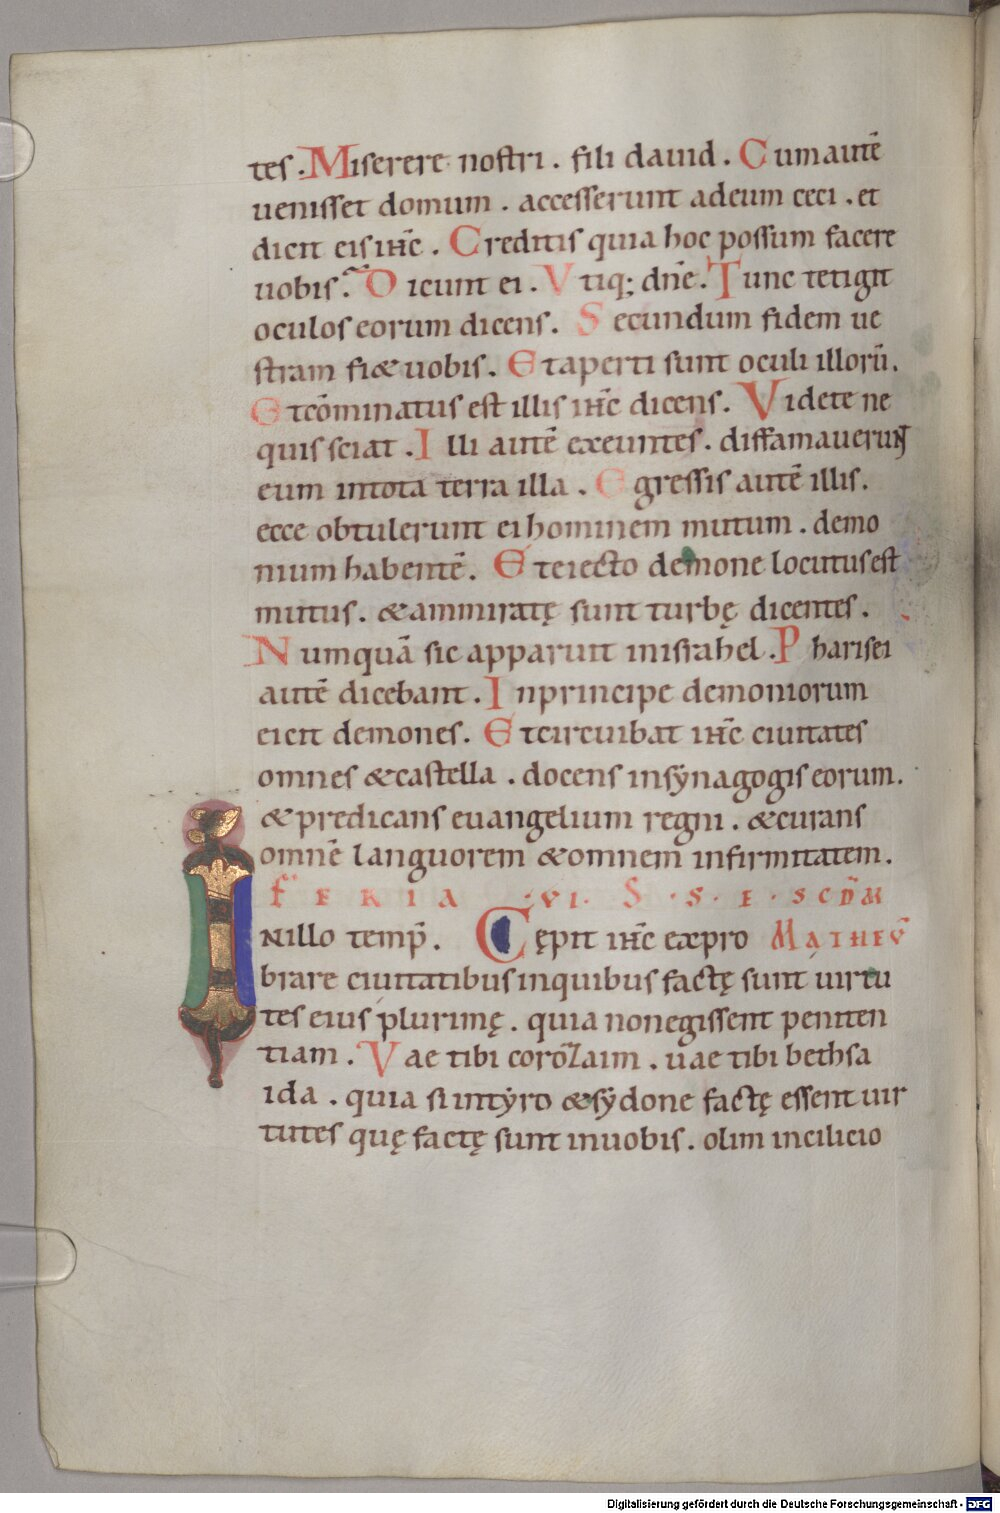 tes. Miserere nostri. fili dauid. Cum autē
uenisset domum. accesserunt ad eum ceci. et
dicit eis ihc̄. Creditis quia hoc possum facere
uobis? Dicunt ei. Vtiq; dn̄e. Tunc tetigit
oculos eorum dicens. Secundum fidem ue
stram fiæ uobis. Et aperti sunt oculi illorū.
Et cōminatus est illis ihc̄ dicens. Videte ne
quis sciat. Illi autē exeuntes. diffamauerunt
eum in tota terra illa. Egressis autē illis.
ecce obtulerunt ei hominem mutum. demo
nium habentē. Et eiecto demone locutus est
mutus. & ammiratę sunt turbę dicentes.
Numquā sic apparuit in israhel. Pharisei
autē dicebant. In principe demoniorum
eicit demones. Et circuibat ihc̄ ciuitates
omnes & castella. docens in sẏnagogis eorum.
& predicans euangelium regni. & curans
omnē languorem & omnem infirmitatem.
FERIA ·VI· S · S · E · SCD̄M
IN illo temp̄. Cępit ihc̄ expro MATHEV̄
brare ciuitatibus in quibus factę sunt uirtu
tes eius plurimę. quia non egissent peniten
tiam. Vae tibi corozaim. uae tibi bethsa
ida. quia si in tẏro & sẏdone factę essent uir
tutes quę factę sunt in uobis. olim in cilicio
Digitalisierung gefördert durch die Deutsche Forschungsgemeinschaft - DFG